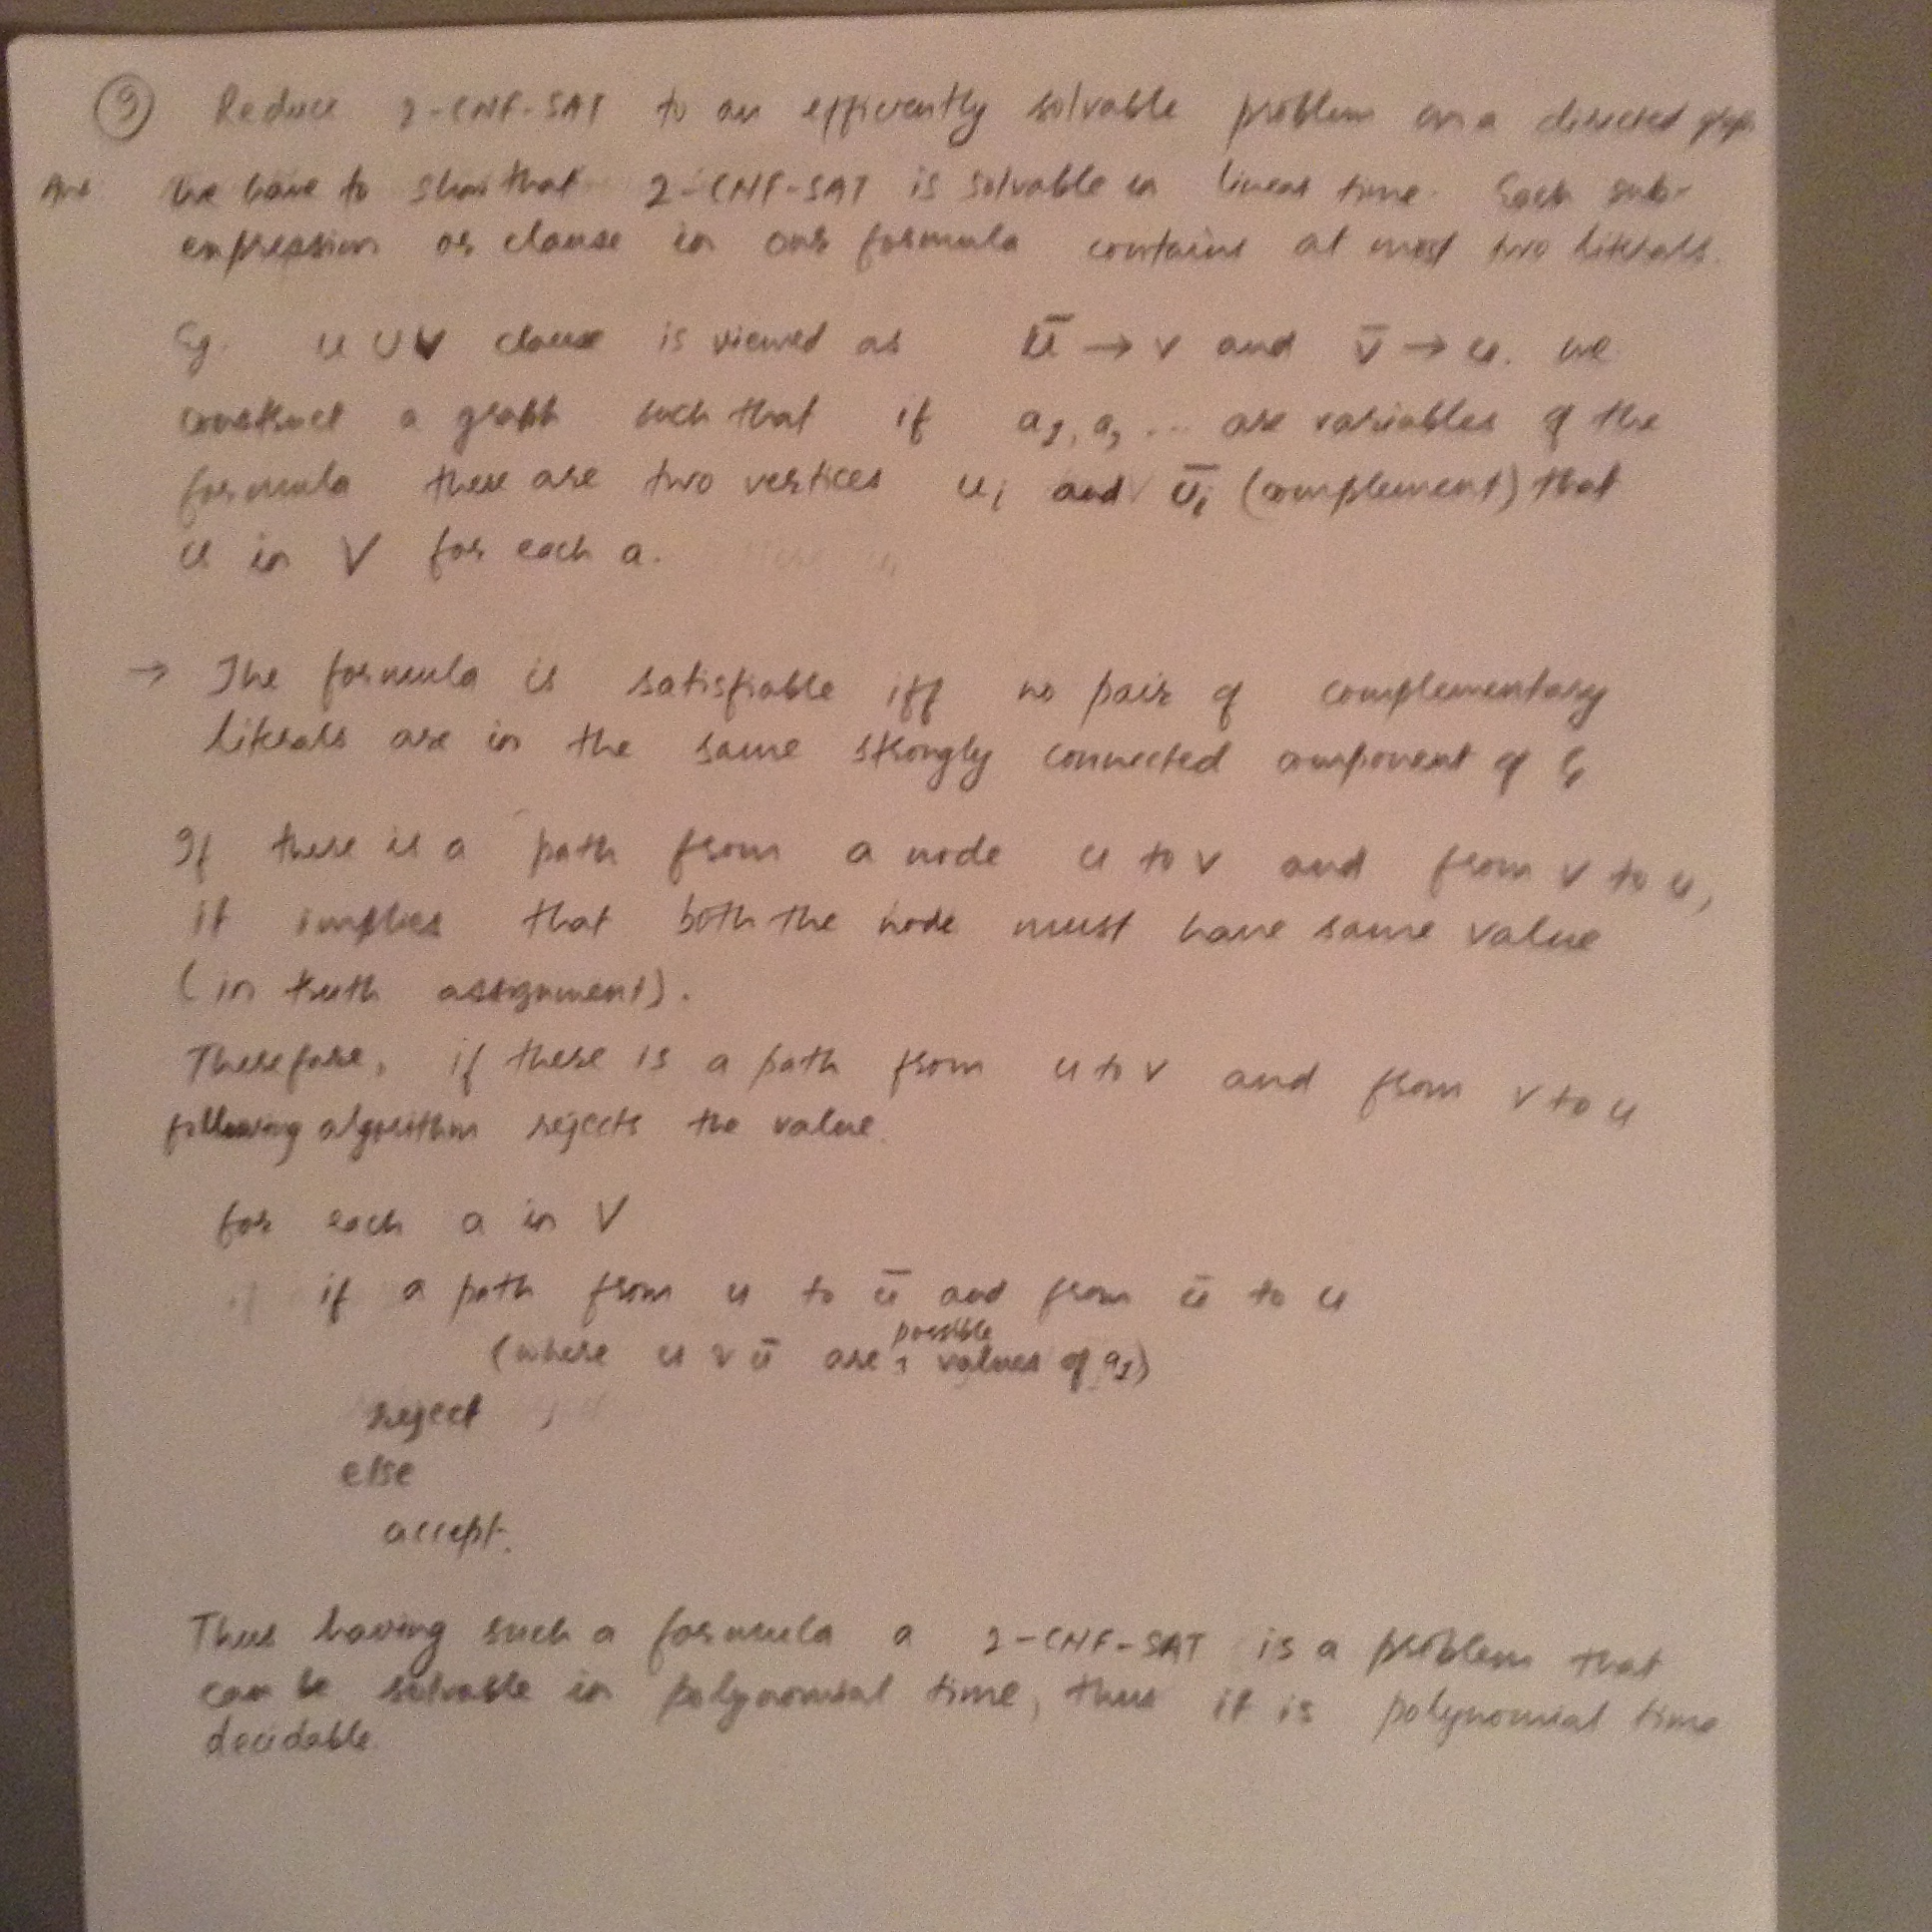 ③ Reduce 2-CNF-SAT to an efficently solvable problem on a directed graph
Ans. We have to show that 2-CNF-SAT is solvable in linear time. Each sub-
expression or clause in our formula contains at most two literals.
Eg. u ∪ v clause is viewed as ū → v and v̄ → u. we
construct a graph such that if a₁, a₂ ... are variables of the
formula there are two vertices uᵢ and ūᵢ (complement) that
is in V for each a.
→ The formula is satisfiable iff no pair of complementary
literals are in the same strongly connected component of G
If there is a path from a node u to v and from v to u,
it implies that both the node must have same value
(in truth assignment).
Therefore, if there is a path from u to v and from v to u
following algorithm rejects the value.
for each a in V
if a path from u to ū and from ū to u
(where u v ū are possible values of a₁)
reject
else
accept.
Thus having such a formula a 2-CNF-SAT is a problem that
can be solvable in polynomial time, thus it is polynomial time
decidable.